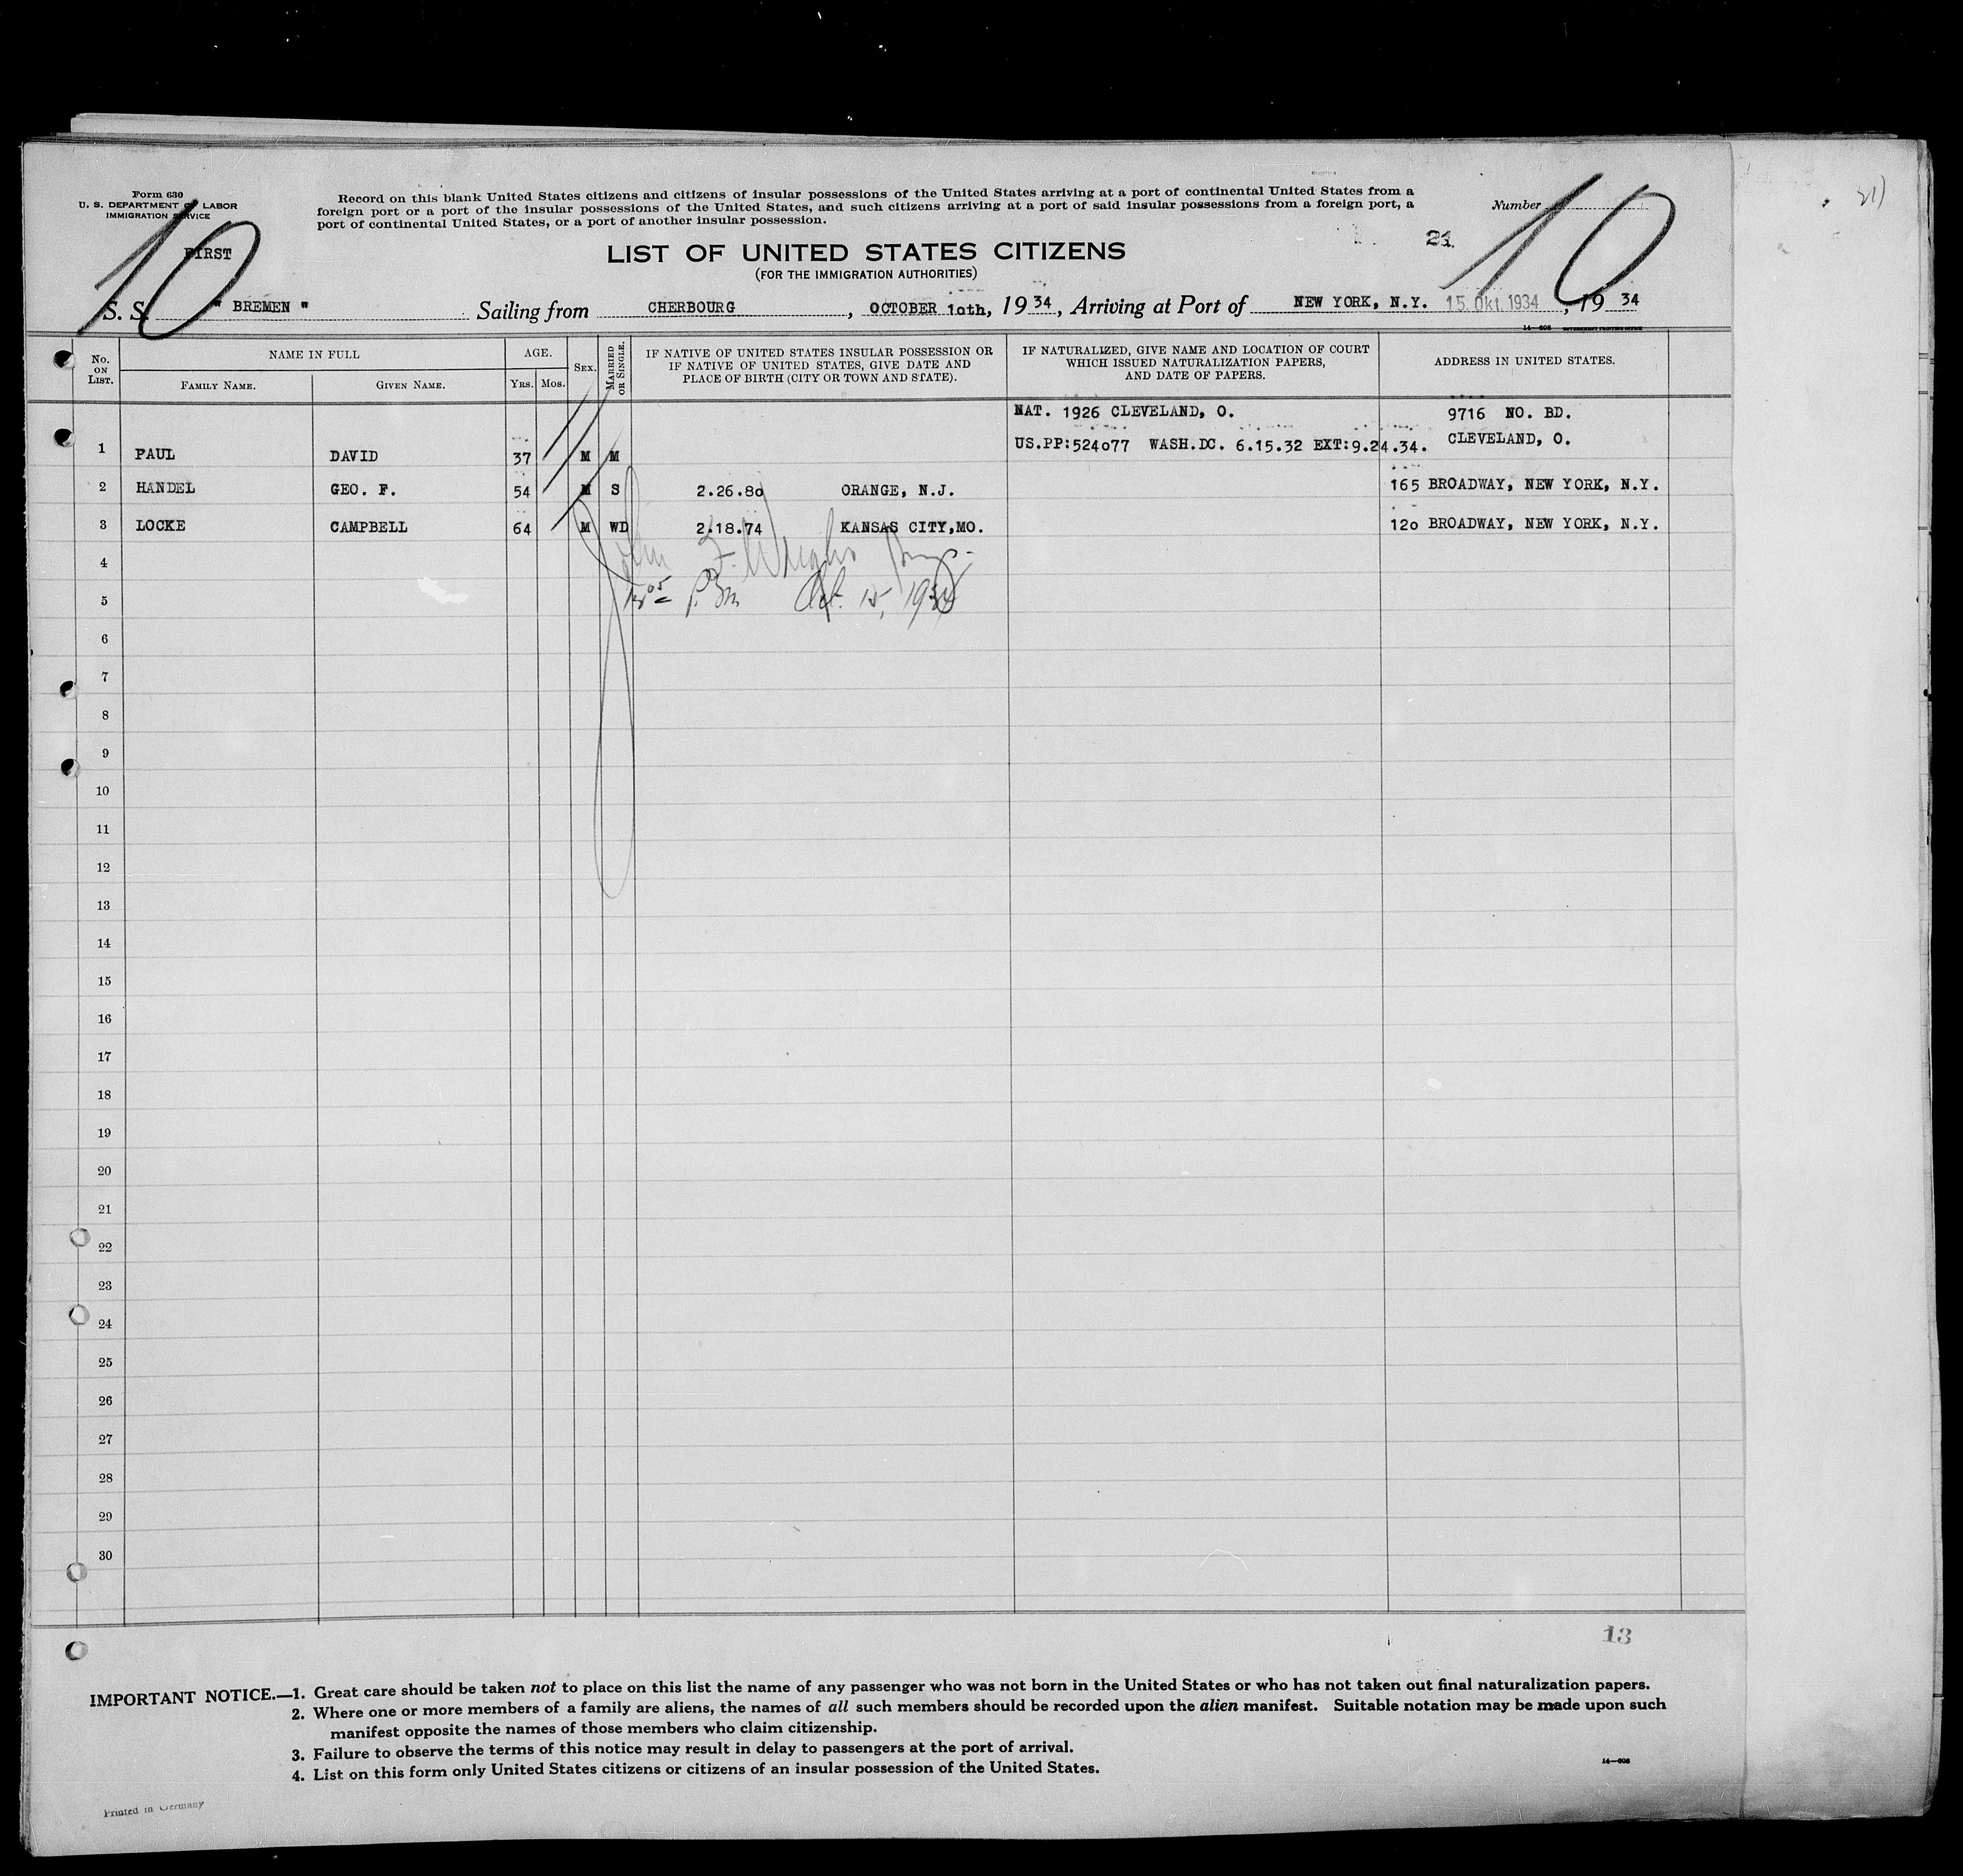 Form 630
U. S. DEPARTMENT OF LABOR
IMMIGRATION SERVICE
FIRST
10
Record on this blank United States citizens and citizens of insular possessions of the United States arriving at a port of continental United States from a
foreign port or a port of the insular possessions of the United States, and such citizens arriving at a port of said insular possessions from a foreign port, a
port of continental United States, or a port of another insular possession.
Number
10
21
LIST OF UNITED STATES CITIZENS
(FOR THE IMMIGRATION AUTHORITIES)
S. S. " BREMEN " Sailing from CHERBOURG, OCTOBER 1oth, 1934, Arriving at Port of NEW YORK, N.Y. 15. Okt. 1934, 1934
14—608 GOVERNMENT PRINTING OFFICE
No. ON LIST. NAME IN FULL AGE. SEX. MARRIED OR SINGLE. IF NATIVE OF UNITED STATES INSULAR POSSESSION OR IF NATIVE OF UNITED STATES, GIVE DATE AND PLACE OF BIRTH (CITY OR TOWN AND STATE). IF NATURALIZED, GIVE NAME AND LOCATION OF COURT WHICH ISSUED NATURALIZATION PAPERS, AND DATE OF PAPERS. ADDRESS IN UNITED STATES.
FAMILY NAME. GIVEN NAME. YRS. MOS.
NAT. 1926 CLEVELAND, O. 9716 NO. BD.
1 PAUL DAVID 37 M M US.PP:524o77 WASH.DC. 6.15.32 EXT:9.24.34. CLEVELAND, O.
2 HANDEL GEO. F. 54 M S 2.26.8o ORANGE, N.J. 165 BROADWAY, NEW YORK, N.Y.
3 LOCKE CAMPBELL 64 M WD 2.18.74 KANSAS CITY,MO. 12o BROADWAY, NEW YORK, N.Y.
4
5 P.M. Oct. 15, 1934
6
7
8
9
10
11
12
13
14
15
16
17
18
19
20
21
22
23
24
25
26
27
28
29
30
13
IMPORTANT NOTICE.—1. Great care should be taken not to place on this list the name of any passenger who was not born in the United States or who has not taken out final naturalization papers.
2. Where one or more members of a family are aliens, the names of all such members should be recorded upon the alien manifest. Suitable notation may be made upon such
manifest opposite the names of those members who claim citizenship.
3. Failure to observe the terms of this notice may result in delay to passengers at the port of arrival.
4. List on this form only United States citizens or citizens of an insular possession of the United States.
14—608
Printed in Germany